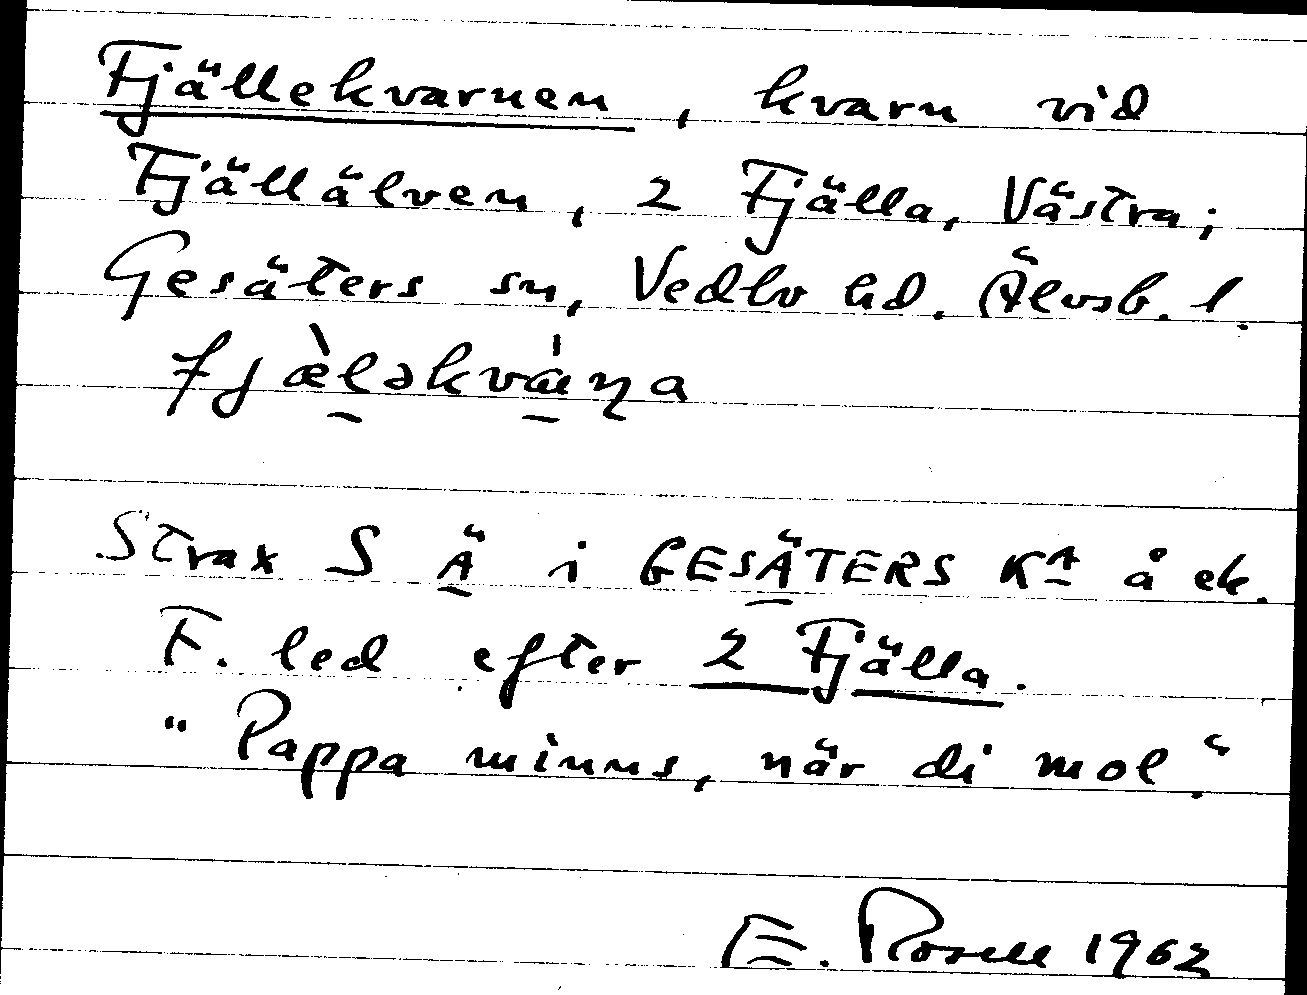 Fjällekvarnen, kvarn vid
Fjällälven, 2 Fjälla, Västra;
Gesäters sn, Vedbo hd. Älvsb. l.
fjæ̀ləkvàɳa
Strax S Ä i GESÄTERS KA å ek.
F. led efter 2 Fjälla.
"Pappa minns, när di mol."
E. Rosell 1962